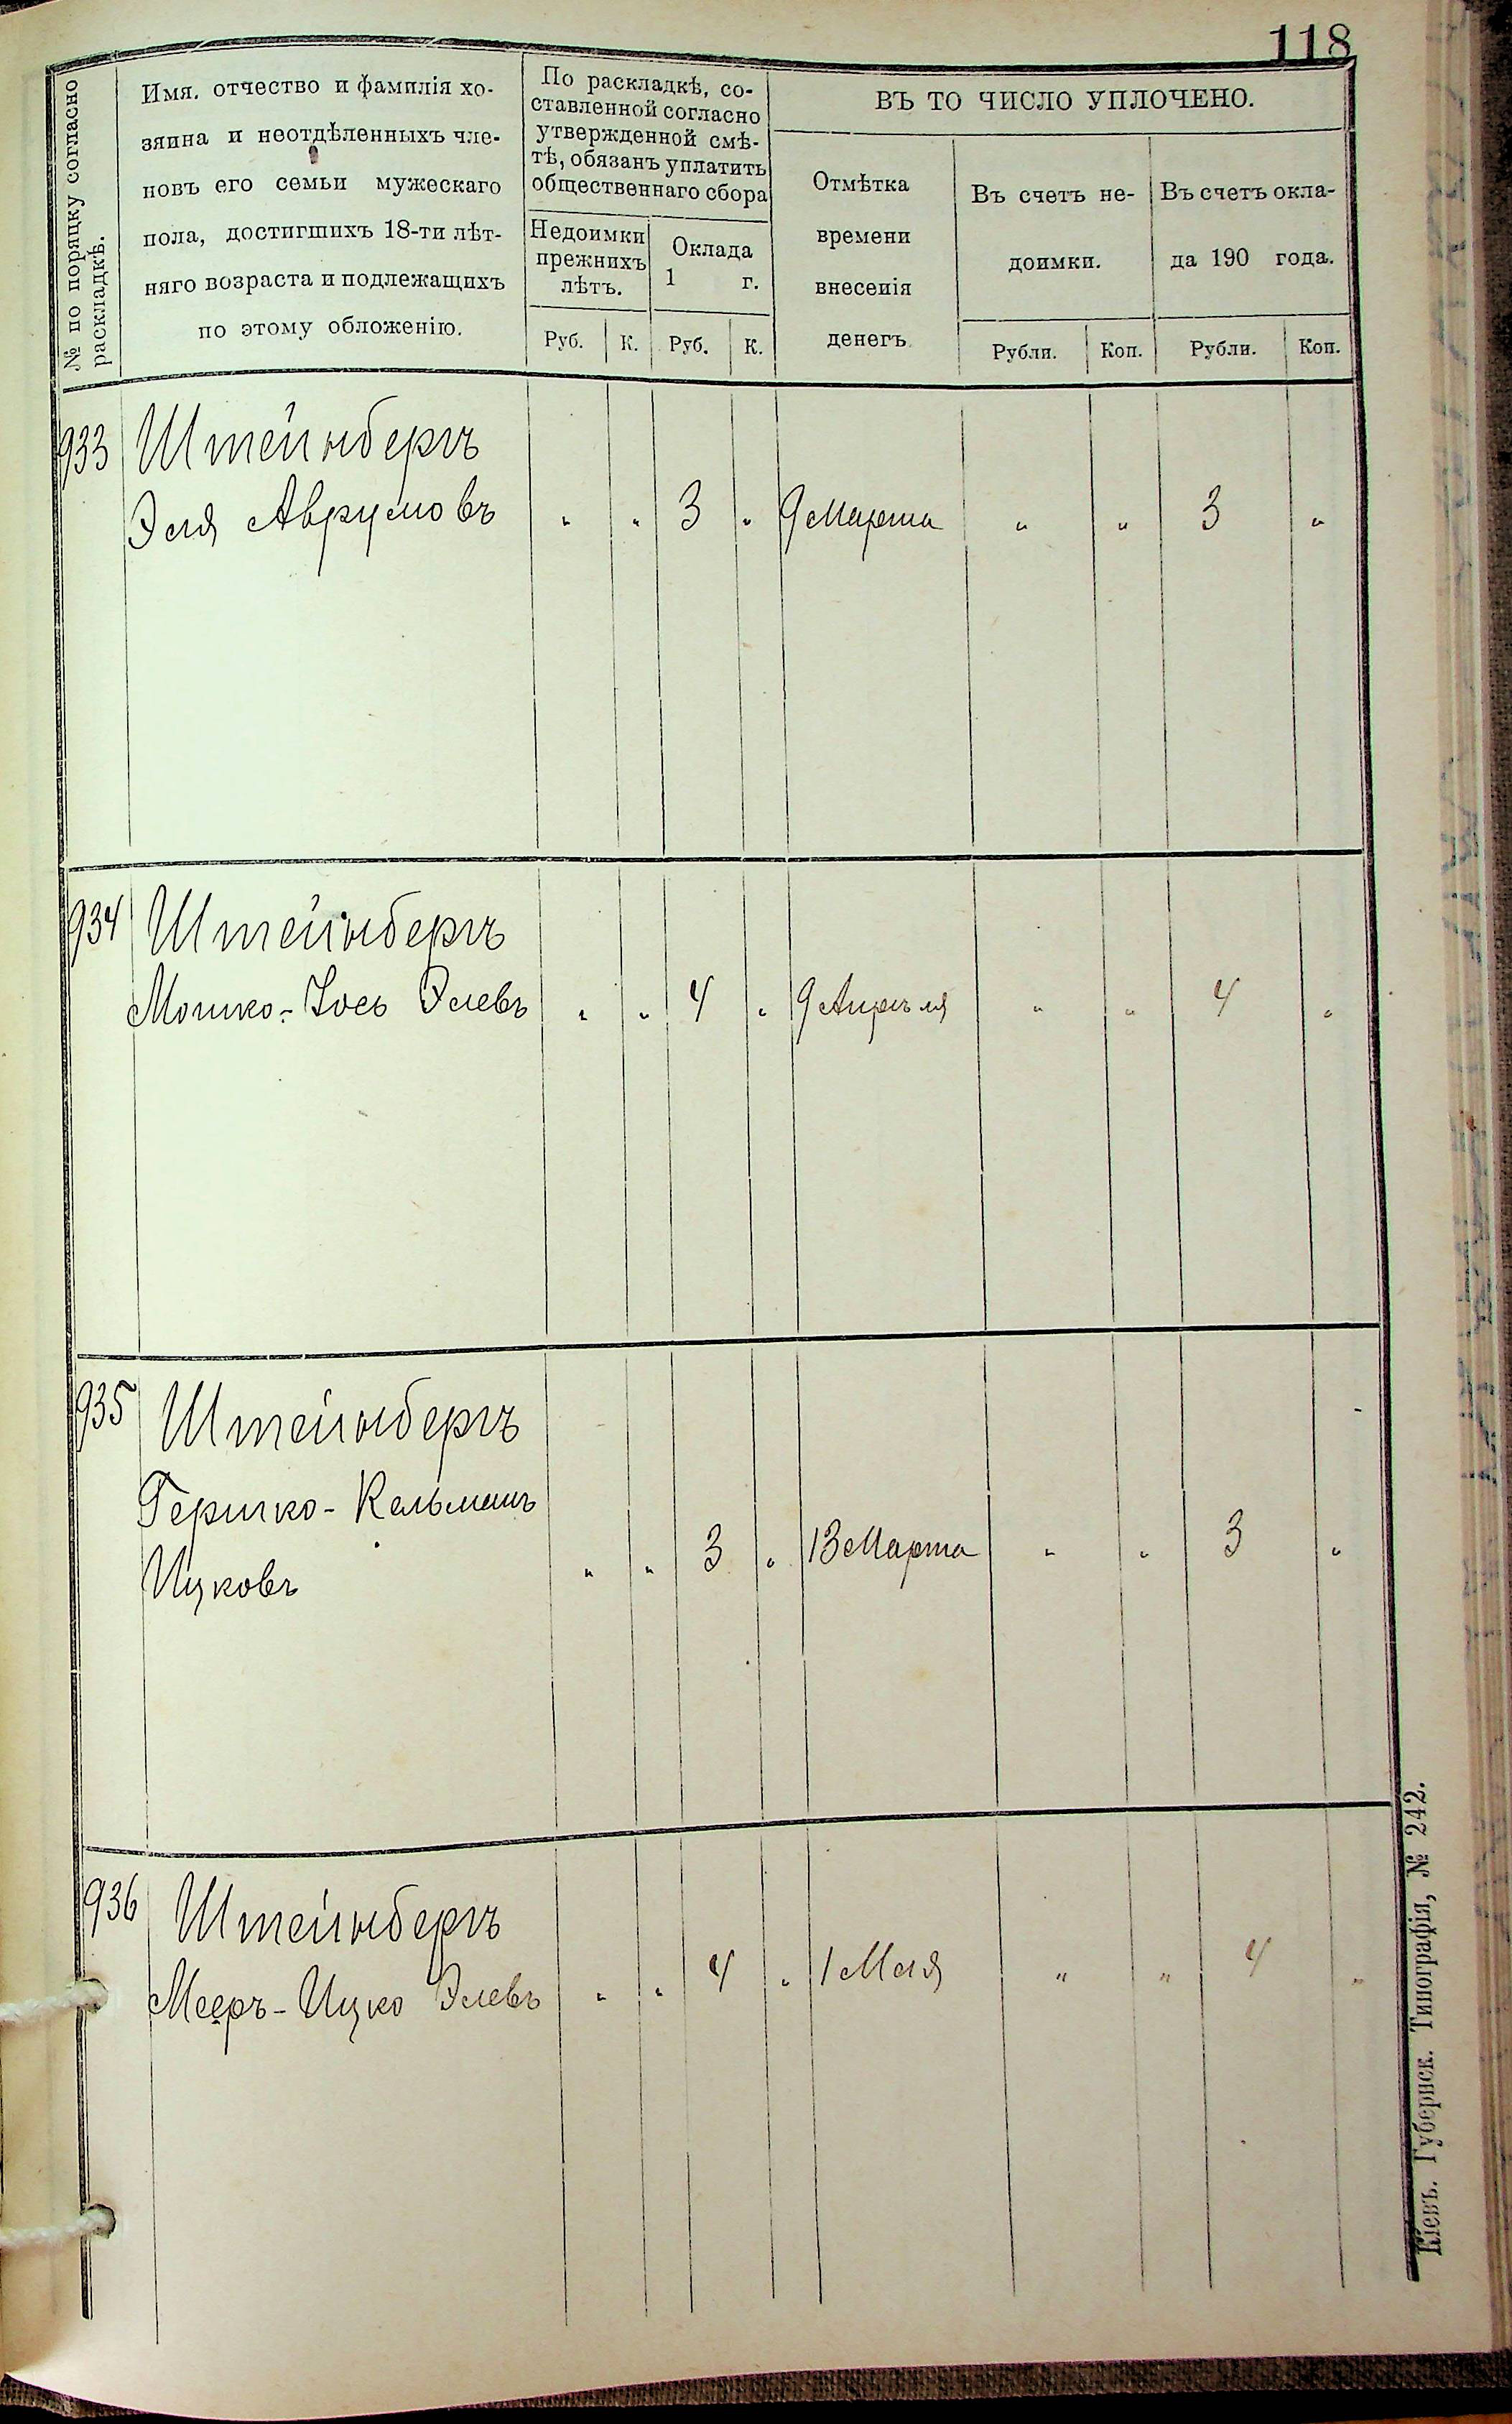 118
№ по порядку согласно
раскладкѣ.
Имя. отчество и фамилія хо-
зяина и неотдѣленныхъ чле-
новъ его семьи мужескаго
пола, достигшихъ 18-ти лѣт-
няго возраста и подлежащихъ
по этому обложенію.
По раскладкѣ, со-
ставленной согласно
утвержденной смѣ-
тѣ, обязанъ уплатить
общественнаго сбора
Недоимки
прежнихъ
лѣтъ.
Оклада
1 г.
Руб. К. Руб. К.
ВЪ ТО ЧИСЛО УПЛОЧЕНО.
Отмѣтка
времени
внесенія
денегъ
Въ счетъ не-
доимки.
Въ счетъ окла-
да 190 года.
Рубли. Коп. Рубли. Коп.
933 Штейнбергъ
Эля Аврумовъ " " 3 " 9 Марта " " 3 "
934 Штейнбергъ
Мошко-Іось Элевъ " " 4 " 9 Апрѣля " " 4 "
935 Штейнбергъ
Гершко-Кельманъ
Ицковъ " " 3 " 13 Марта " " 3 "
936 Штейнбергъ
Мееръ-Ицко Элевъ " " 4 " 1 Мая " " 4 "
Кіевъ. Губернск. Типографія, № 242.